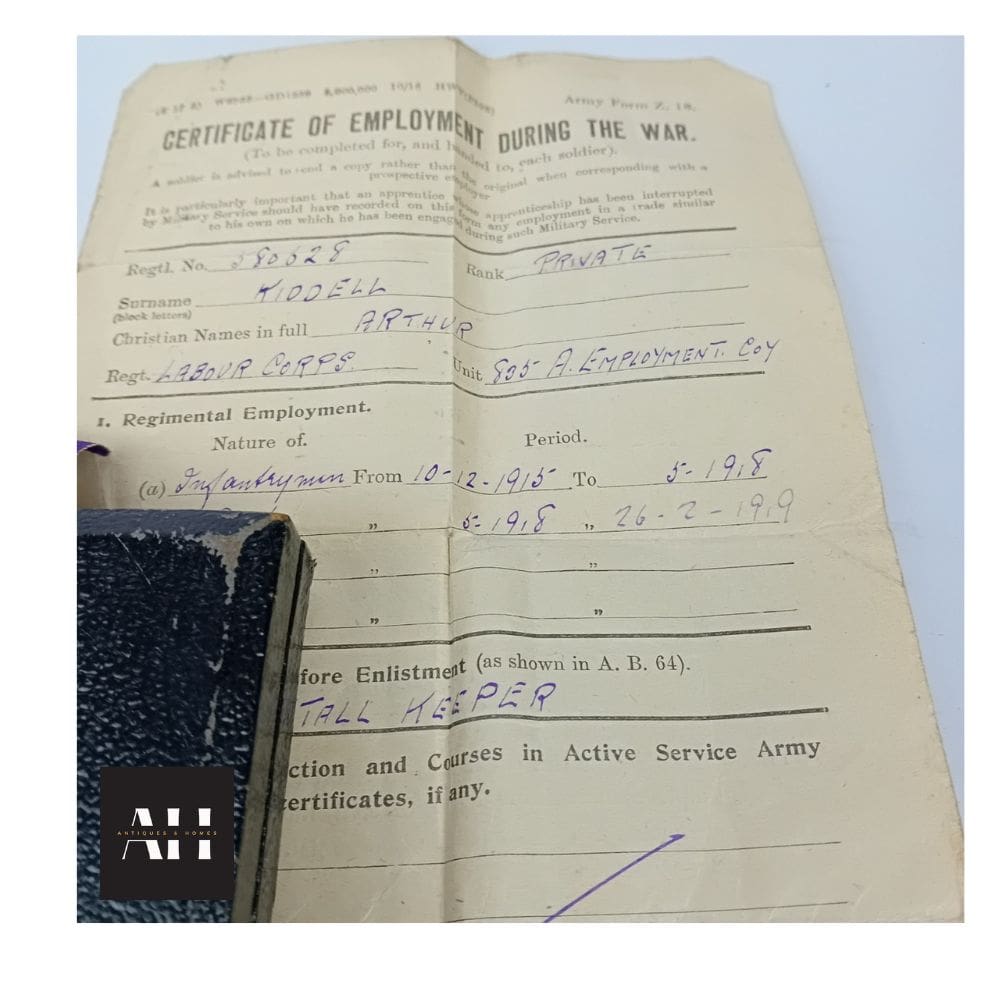 8,000,000 10/18 Army Form Z. 18.
CERTIFICATE OF EMPLOYMENT DURING THE WAR.
(To be completed for, and handed to, each soldier).
A soldier is advised to send a copy rather than the original when corresponding with a
prospective employer
It is particularly important that an apprentice whose apprenticeship has been interrupted
by Military Service should have recorded on this form any employment in a trade similar
to his own on which he has been engaged during such Military Service.
Regtl. No. 80628 Rank PRIVATE
Surname KIDDELL
(block letters)
Christian Names in full ARTHUR
Regt. LABOUR CORPS. Unit 835 A. EMPLOYMENT. COY
1. Regimental Employment.
Nature of. Period.
(a) Infantryman From 10-12-1915 To 5-1918
„ 5-1918 „ 26-2-1919
„ „
„ „
fore Enlistment (as shown in A. B. 64).
TALL KEEPER
ction and Courses in Active Service Army
certificates, if any.
AH
ANTIQUES & HOMES